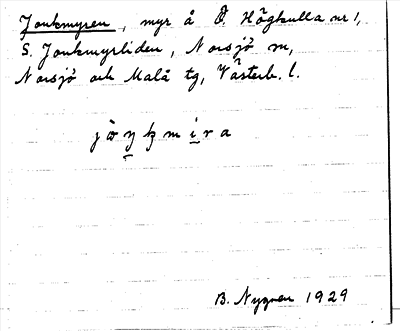 Jonkmyren, myr å Ö. Högkulla nr 1,
S. Jonkmyrliden, Norsjö sn,
Norsjö och Malå tg, Västerb. l.
B. Nygren 1929